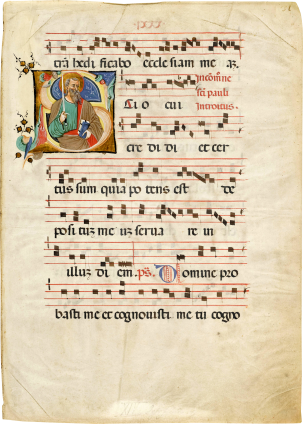 tra͞ hedi ficabo eccle siam me a͞z.
In com͞me
sc͞i pauli
Introitus.
Ci o cui
cre di di et cer
tus sum quia po tens est de
posi tu͞z me u͞z serua re in
illu͞z di em. p͞s. Domine pro
basti me et cognouisti me tu cogno